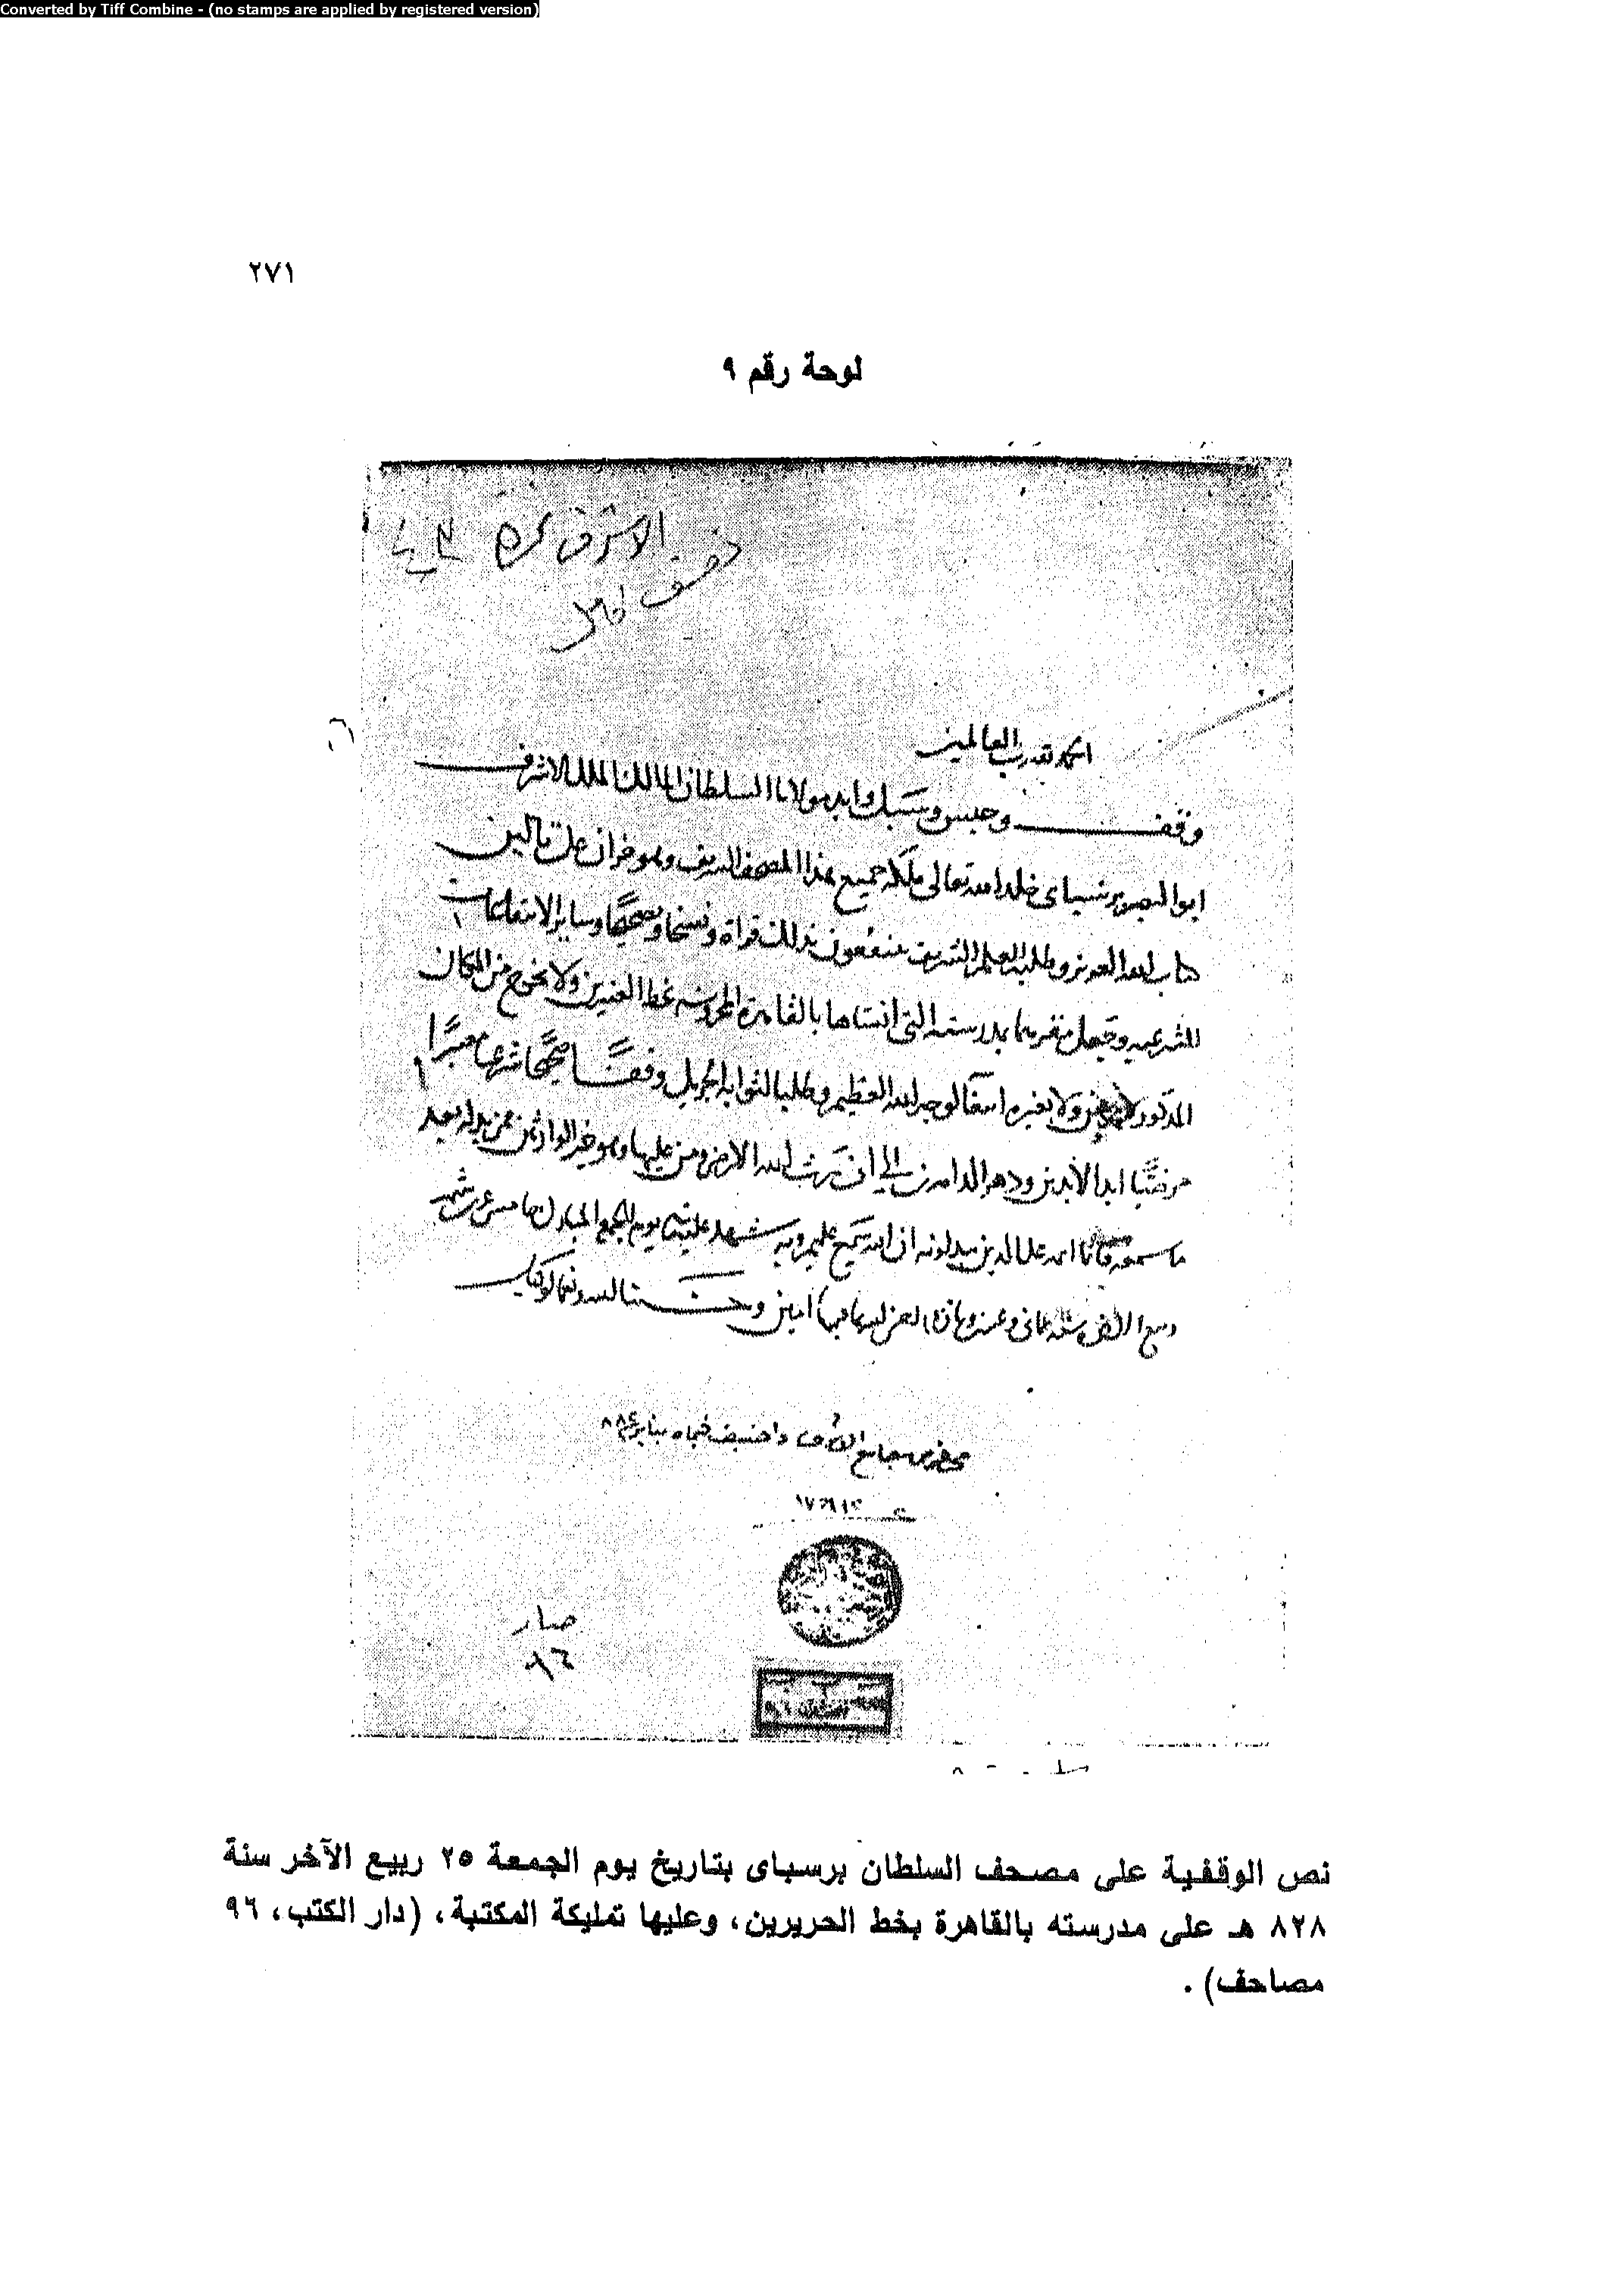 Converted by Tiff Combine - (no stamps are applied by registered version)
٢٧١
لوحة رقم ٩
الاشرف
نصف
الحمد لله رب العالمين
وقف وحبس وسبل وابد مولانا السلطان المالك الملك الاشرف
ابو النصر برسباى خلد الله تعالى ملكه جميع هذا المصحف الشريف وهو قران على تالين
كتاب الله العزيز وطلبة العلم الشريف ينتفعون بذلك قراة ونسخا وساير الانتفاعات
الشرعيه وجعل مقرها بمدرسته التى انشاها بالقاهرة المحروسه بخط ولا يخرج من المكان
المذكور ولا بغيره ابتغا لوجه الله العظيم وطلبا لثوابه الجزيل وقفا صحيحا شرعيا معتبرا
مرضيا ابد الابدين ودهر الداهرين الى ان يرث الله الارض ومن عليها وهو خير الوارثين فمن بدله بعد
ما سمعه فانما اثمه على الذين يبدلونه ان الله سميع عليم وبه شهد عليه يوم الجمعة المبارك خامس عشرين شهر
ربيع الاخر سنة ثمانى وعشرين وثمانمائة امين وحسبنا الله ونعم الوكيل
جامع
صار
٩٦
نص الوقفية على مصحف السلطان برسباى بتاريخ يوم الجمعة ٢٥ ربيع الآخر سنة
٨٢٨ هـ على مدرسته بالقاهرة بخط الحريرين، وعليها تمليكة المكتبة، (دار الكتب، ٩٦
مصاحف) .